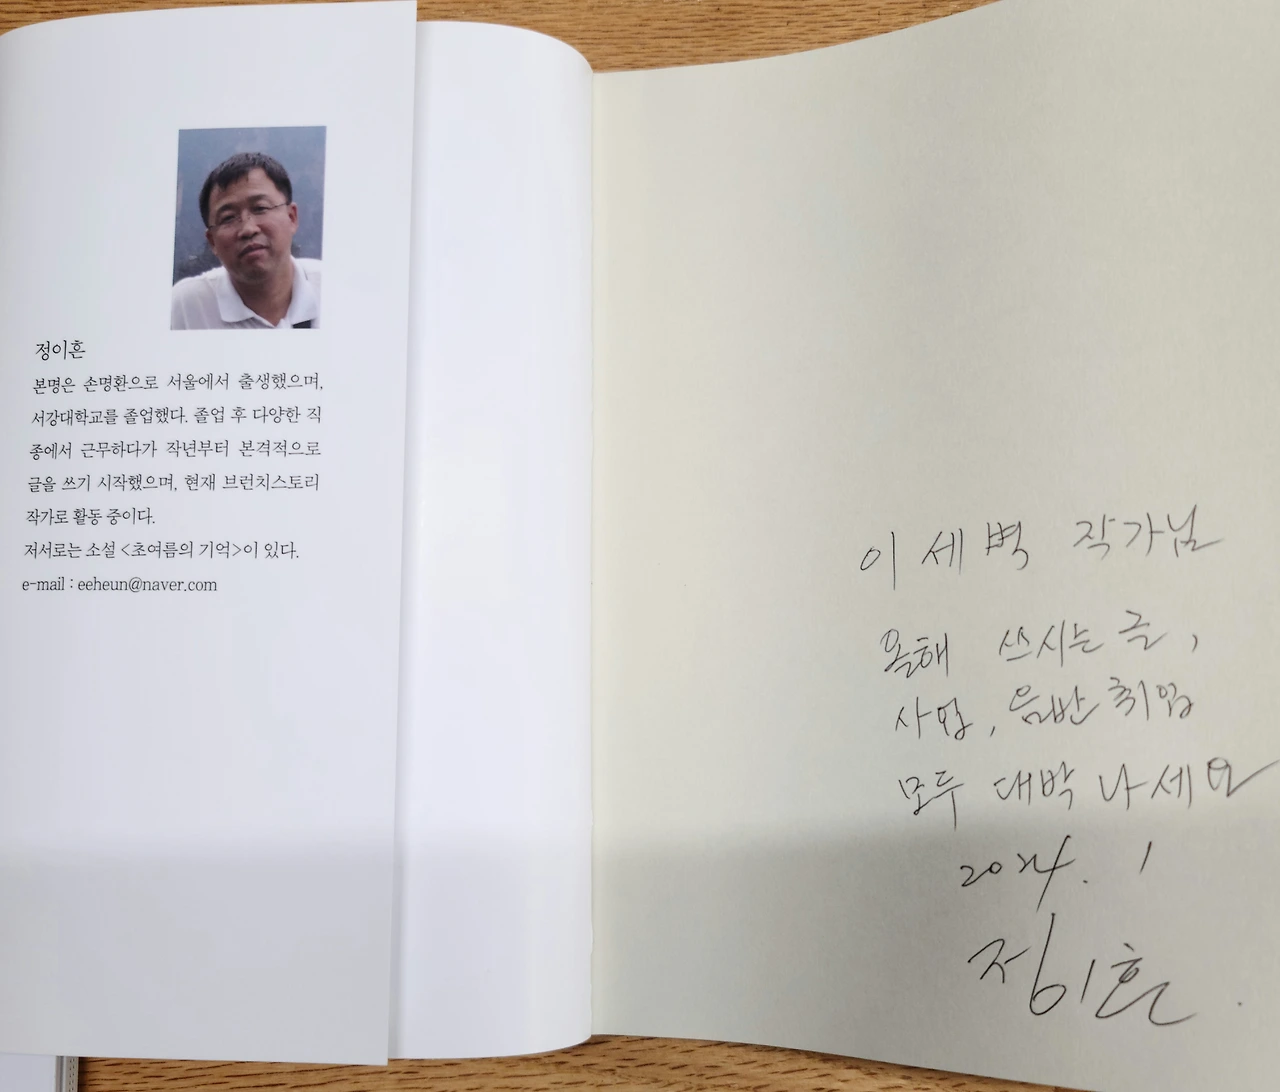 정이흔
본명은 손명환으로 서울에서 출생했으며,
서강대학교를 졸업했다. 졸업 후 다양한 직
종에서 근무하다가 작년부터 본격적으로
글을 쓰기 시작했으며, 현재 브런치스토리
작가로 활동 중이다.
저서로는 소설 <초여름의 기억>이 있다.
e-mail : eeheun@naver.com
이세벽 작가님
올해 쓰시는 글,
사업, 음반취입
모두 대박 나세요
2024. 1
정이흔